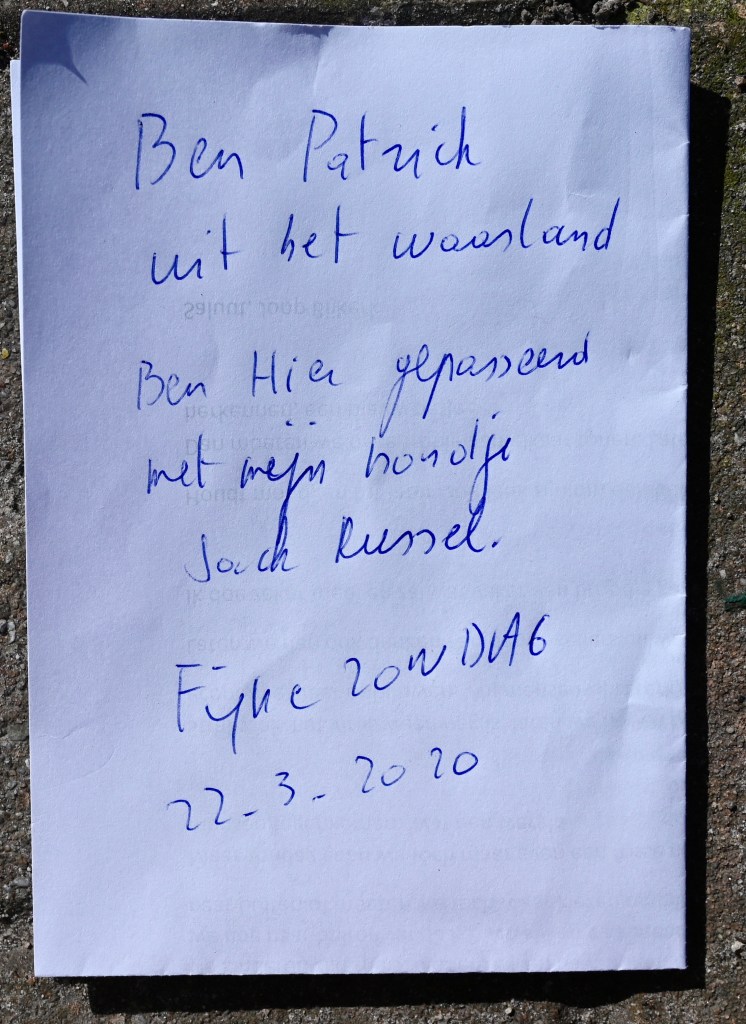 Ben Patrick
uit het waasland
Ben Hier gepasseerd
met mijn hondje
Jack Russel.
Fijne ZONDAG
22-3-2020